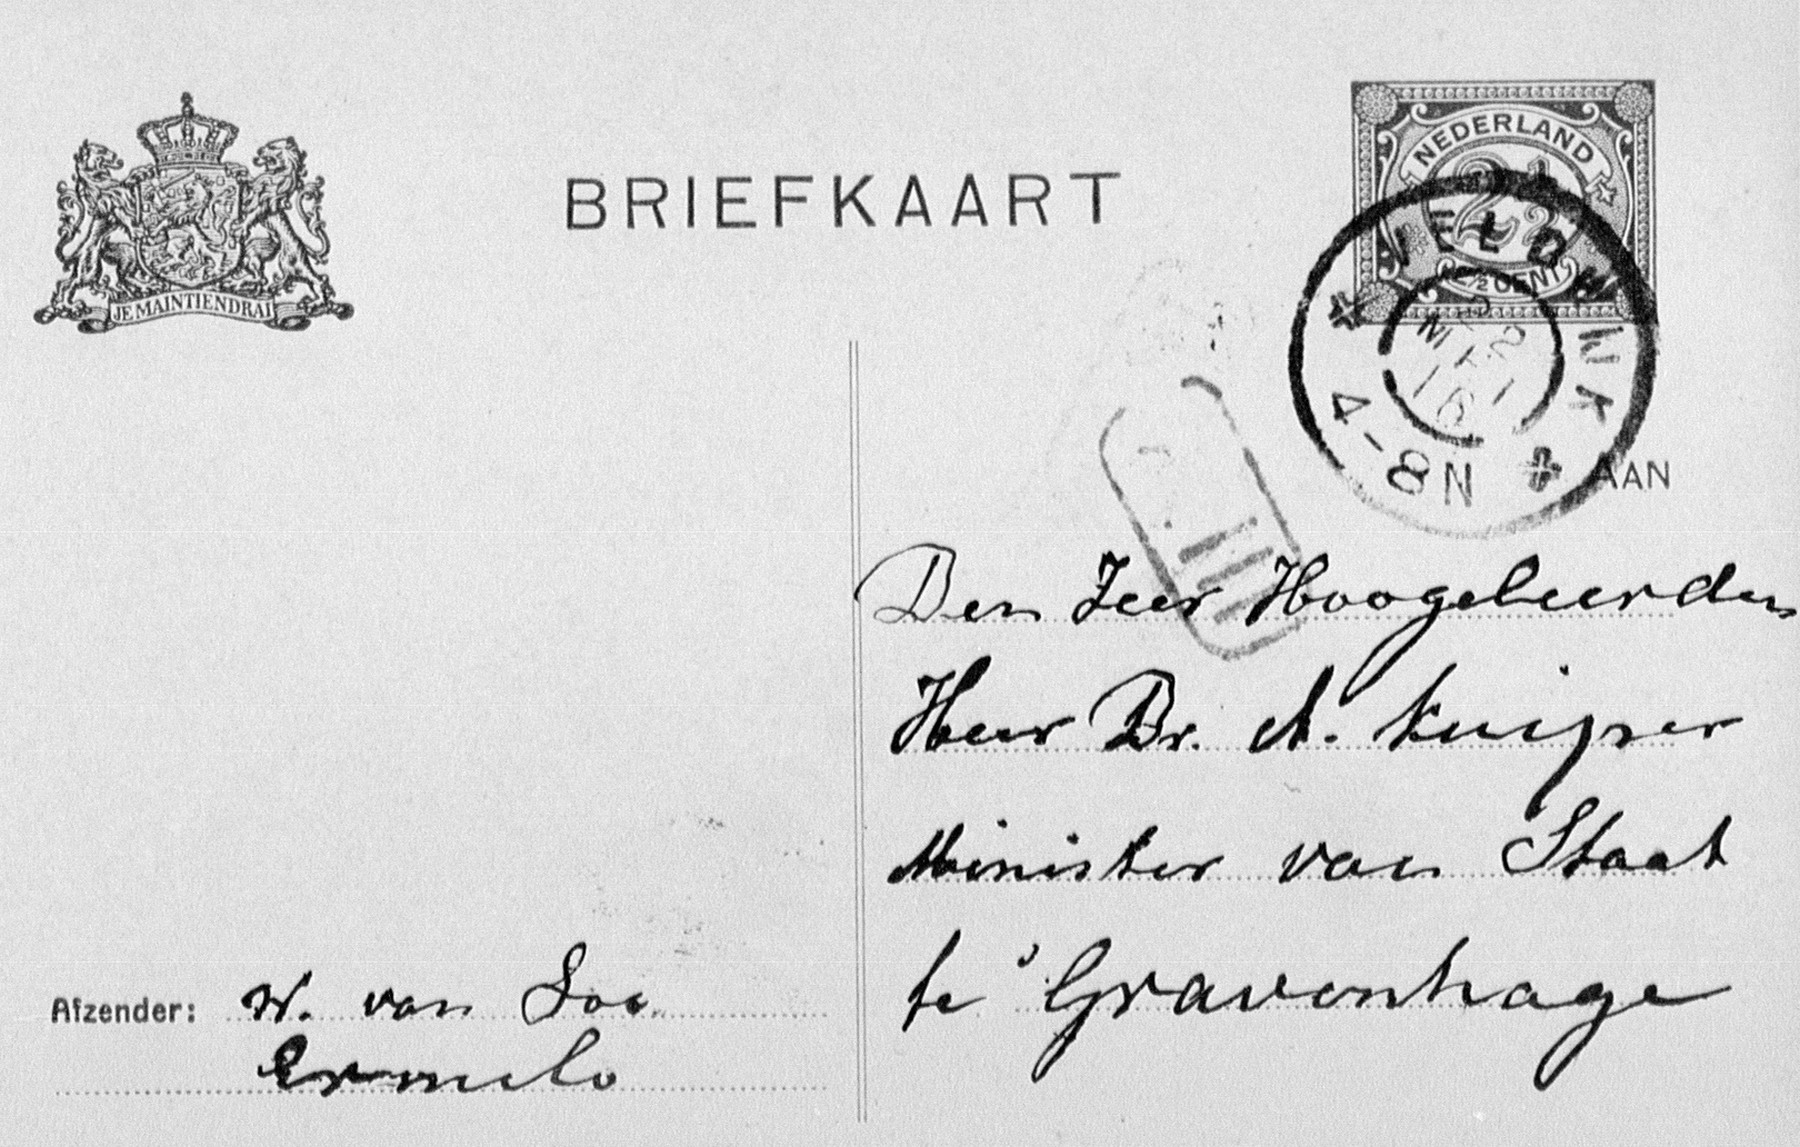 JE MAINTIENDRAI
BRIEFKAART
NEDERLAND
2½
2½ CENT
VELDWIJK
2
MEI
16
4-8N
AAN
Den Zeer Hoogeleerden
Heer Dr. A. Kuijper
Minister van Staat
te 'Gravenhage
Afzender: W. van Loo
Ermelo